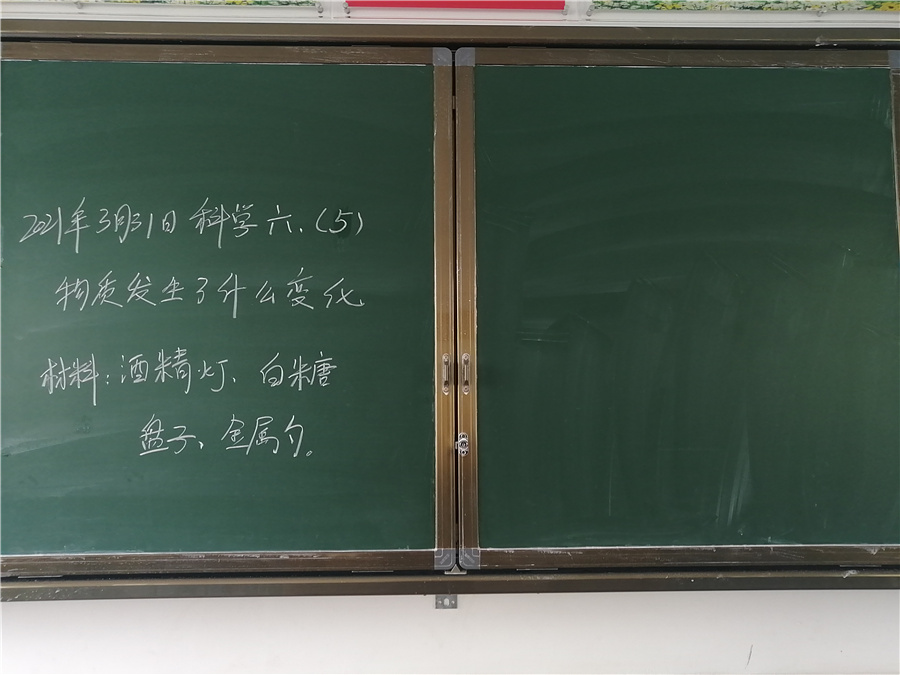 2021年3月31日 科学六.(5)
物质发生了什么变化
材料:酒精灯、白糖
盘子、金属勺。